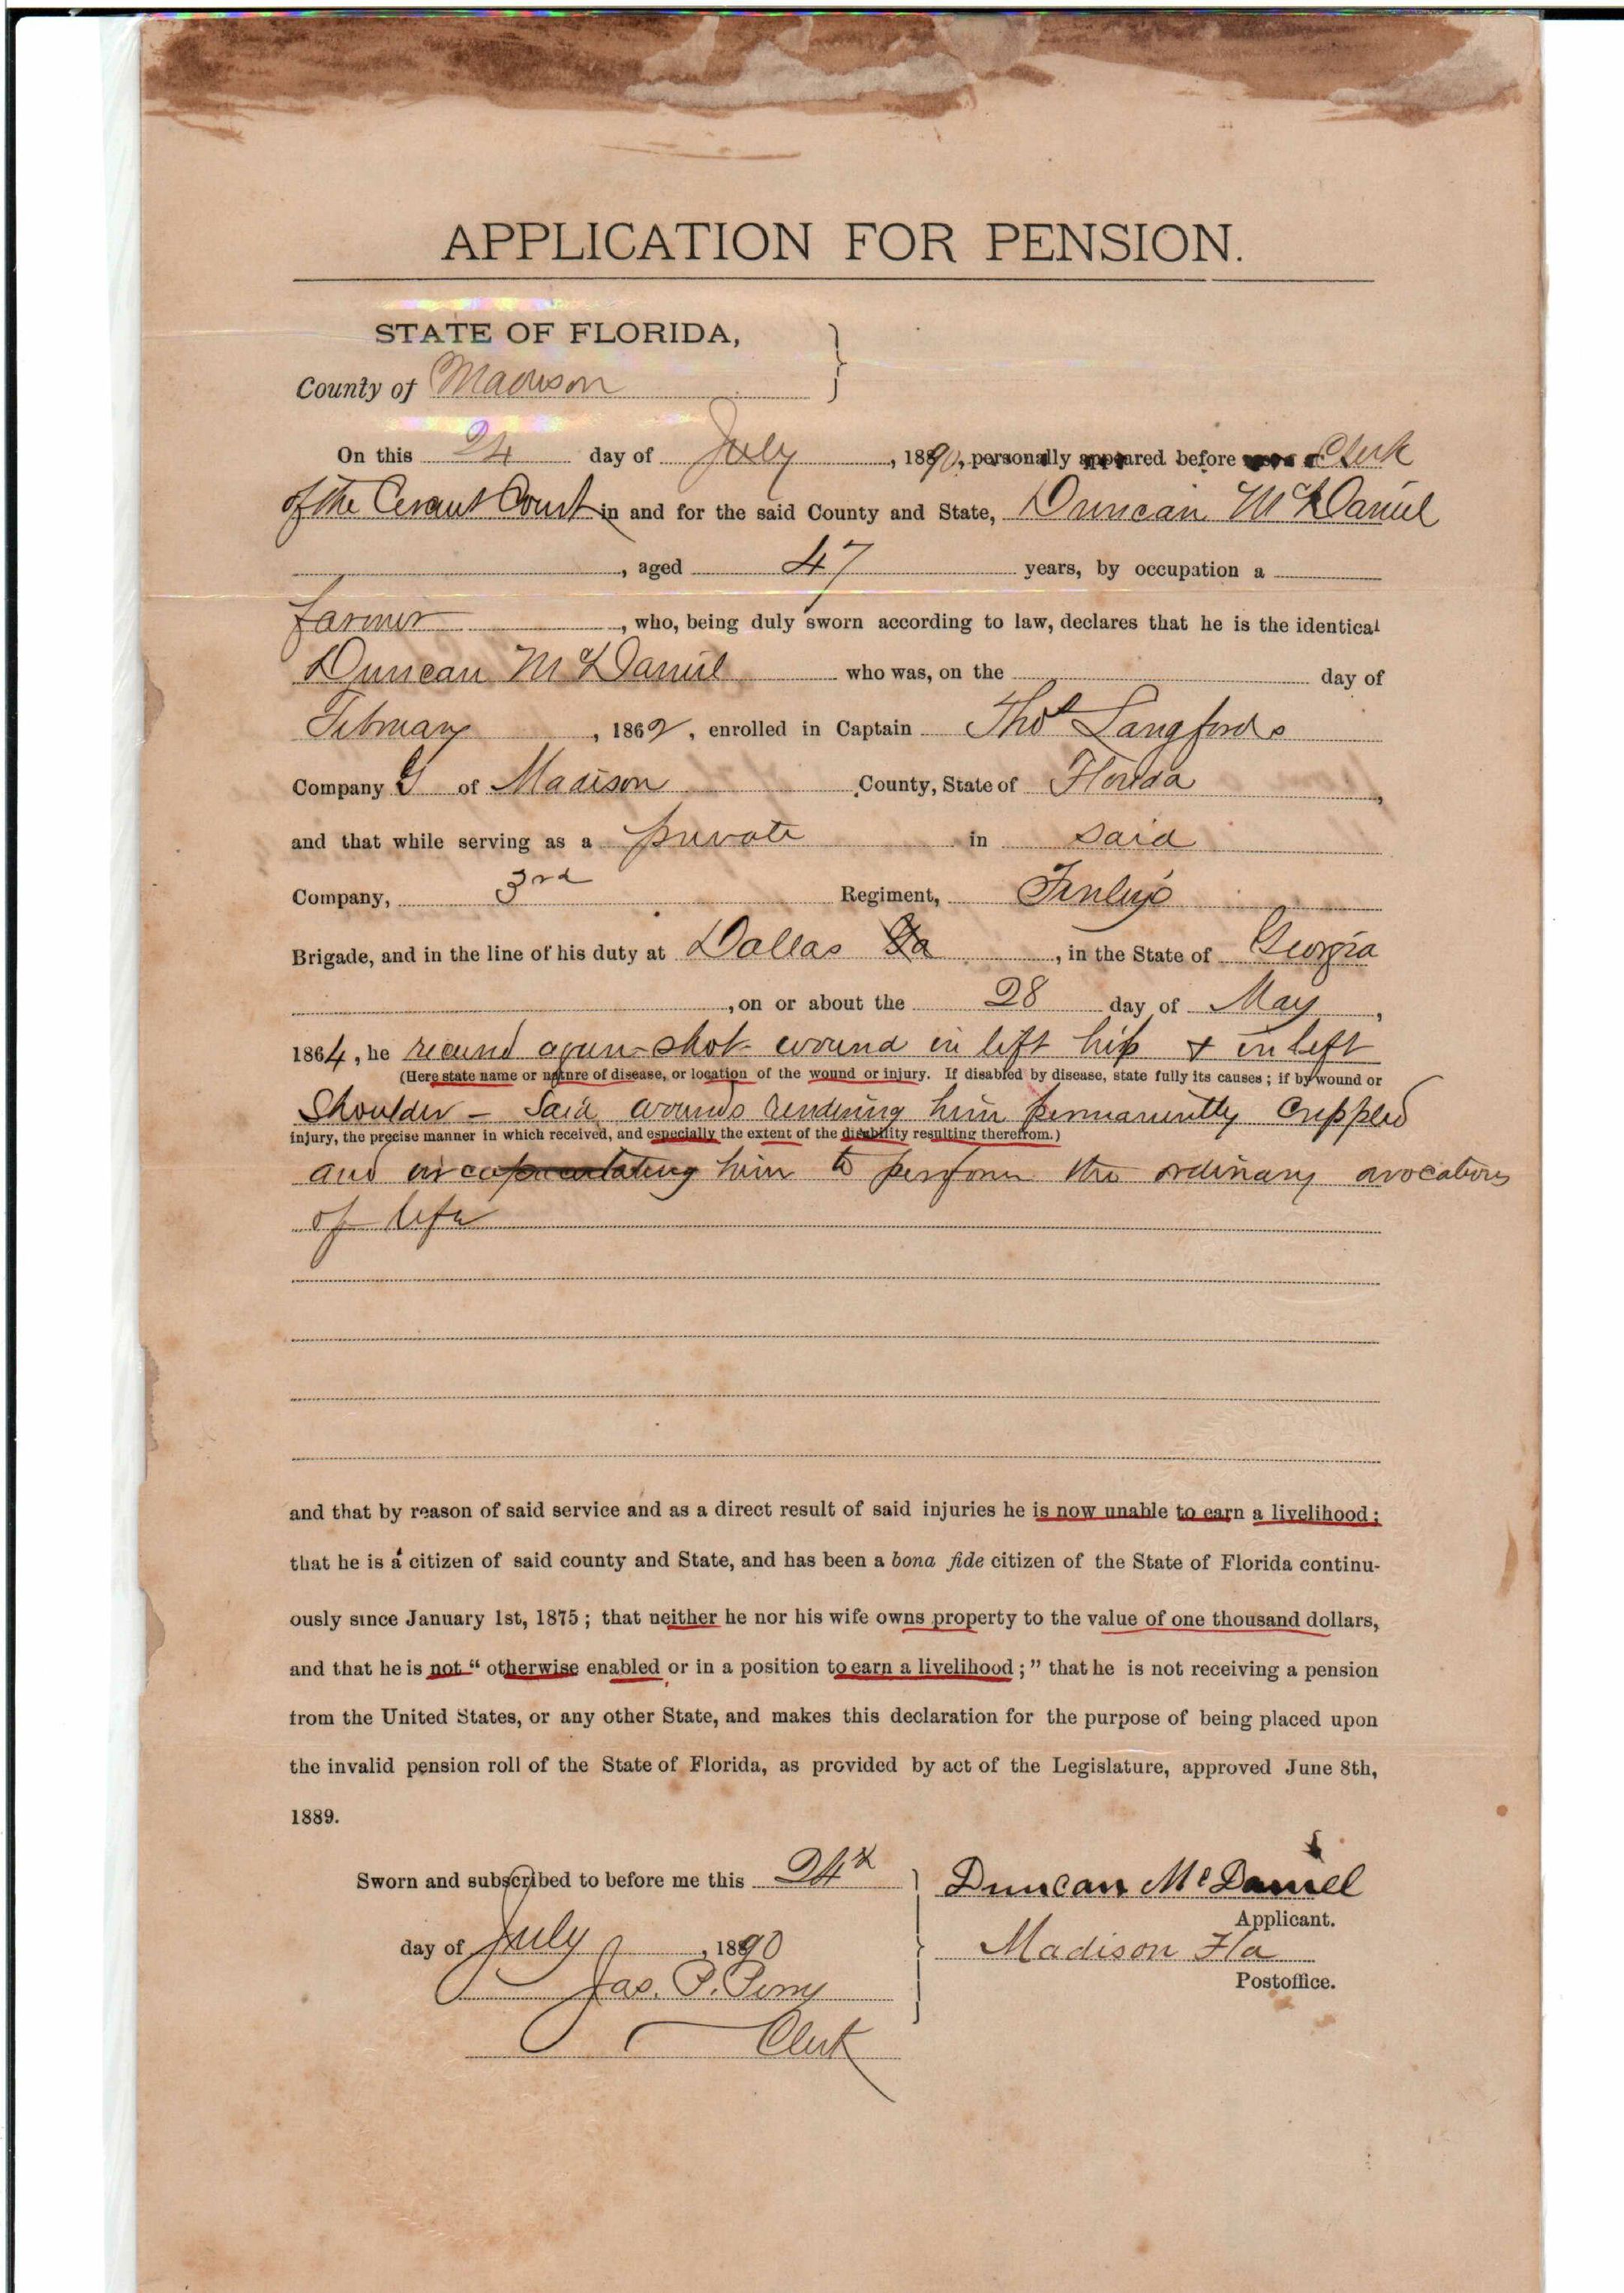 APPLICATION FOR PENSION.
STATE OF FLORIDA,
County of Madison
On this 24 day of July, 1890, personally appeared before Clerk
of the Circuit Court in and for the said County and State, Duncan McDaniel
, aged 47 years, by occupation a
farmer, who, being duly sworn according to law, declares that he is the identical
Duncan McDaniel who was, on the day of
February, 1862, enrolled in Captain Thos Langfords
Company G of Madison County, State of Florida,
and that while serving as a private in said
Company, 3rd Regiment, Finleys
Brigade, and in the line of his duty at Dallas Ga, in the State of Georgia
, on or about the 28 day of May,
1864, he received a gun-shot wound in left hip & in left
(Here state name or nature of disease, or location of the wound or injury. If disabled by disease, state fully its causes; if by wound or
Shoulder - Said wounds rendering him permanently crippled
injury, the precise manner in which received, and especially the extent of the disability resulting therefrom.)
and him to perform the ordinary avocations
of life
and that by reason of said service and as a direct result of said injuries he is now unable to earn a livelihood;
that he is a citizen of said county and State, and has been a bona fide citizen of the State of Florida continu-
ously since January 1st, 1875; that neither he nor his wife owns property to the value of one thousand dollars,
and that he is not "otherwise enabled or in a position to earn a livelihood;" that he is not receiving a pension
from the United States, or any other State, and makes this declaration for the purpose of being placed upon
the invalid pension roll of the State of Florida, as provided by act of the Legislature, approved June 8th,
1889.
Sworn and subscribed to before me this 24th
Duncan McDaniel
Applicant.
day of July, 1890
Madison Fla
Postoffice.
Jas. P. Perry
Clerk